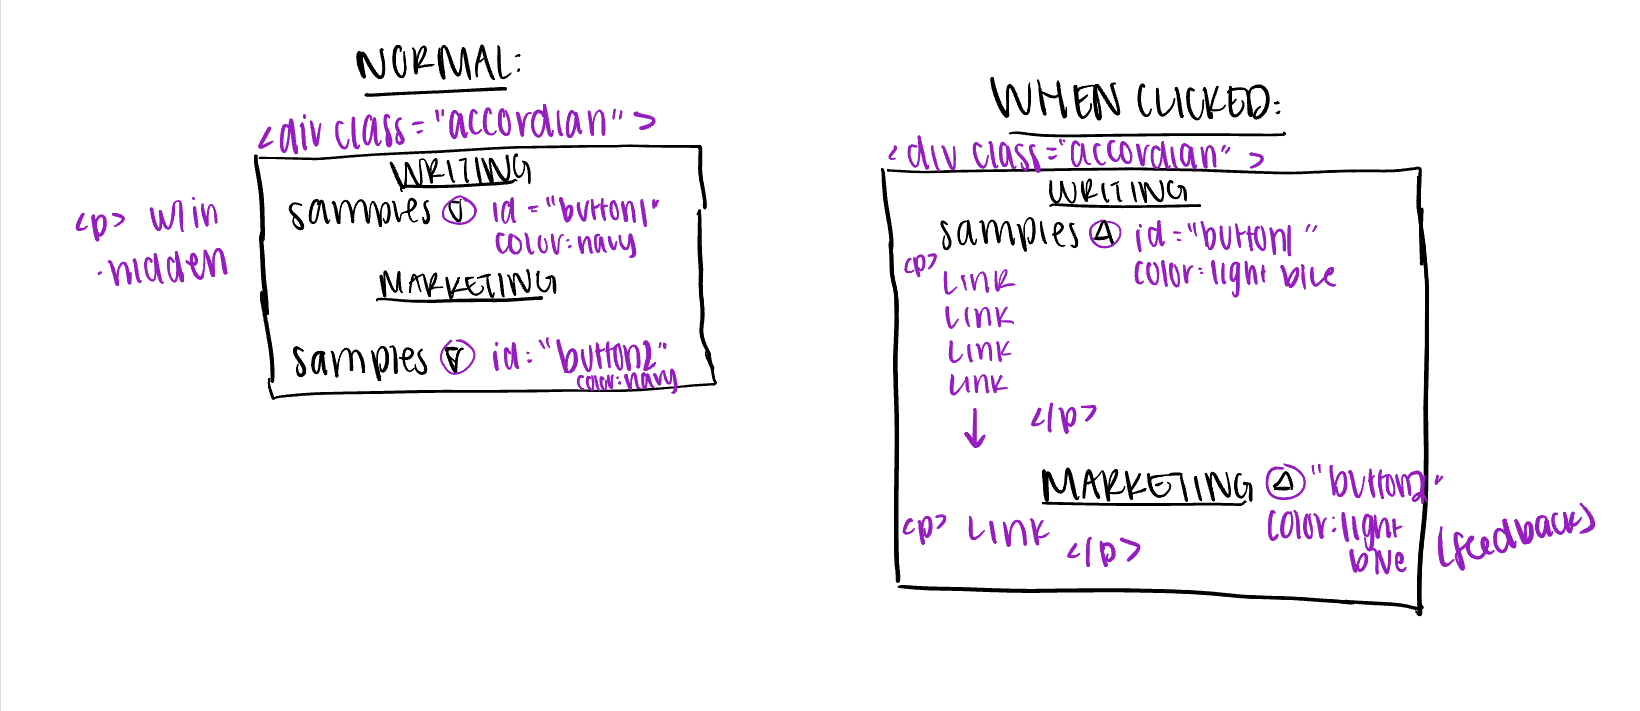 NORMAL:
<div class="accordian">
WRITING
samples id="button1"
color:navy
<p> w/in
.hidden
MARKETING
samples id="button2"
color:navy
WHEN CLICKED:
<div class="accordian">
WRITING
samples id="button1"
color:light blue
<p>
LINK
LINK
LINK
LINK
</p>
MARKETING "button2"
color:light
blue
(feedback)
<p> LINK
</p>